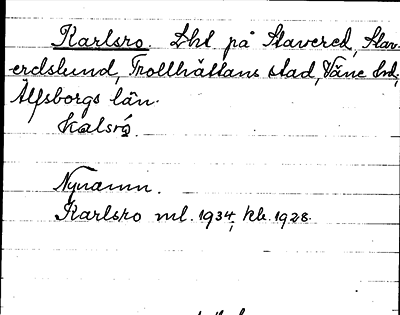 Karlsro. Lht på Stavered, Stav-
erdslund, Trollhättans stad, Väne hd,
Älfsborgs län.
Kalsrå
Nynamn.
Karlsro ml. 1934, kb. 1928.